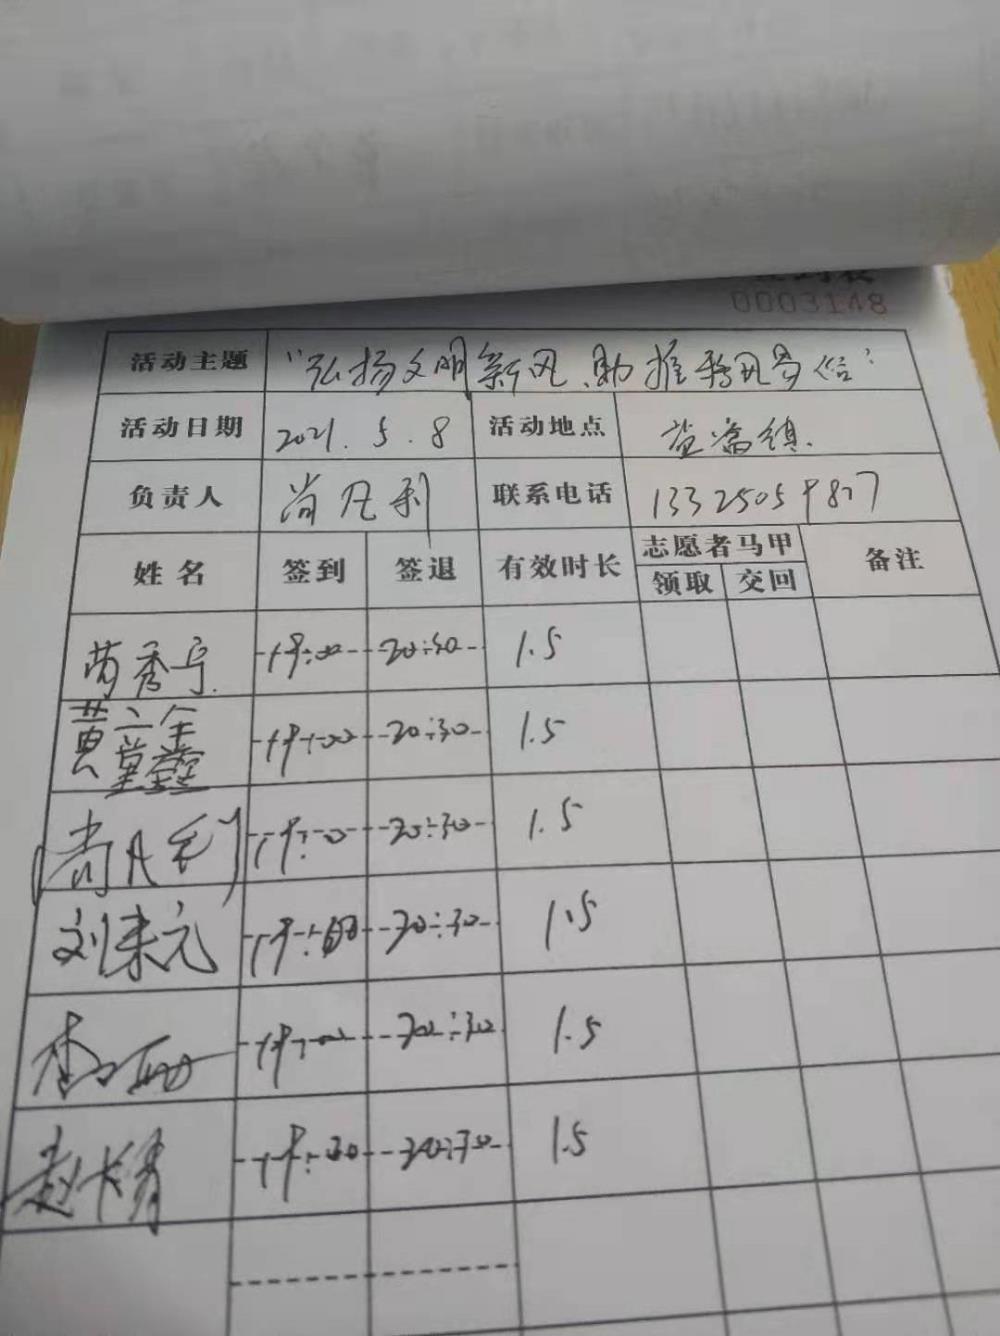 0003148
活动主题 "弘扬文明新风、助推移风易俗"
活动日期 2021.5.8 活动地点 益店镇.
负责人 尚凡利 联系电话 13325059877
姓名 签到 签退 有效时长 志愿者马甲 备注
领取 交回
19:00 20:30 1.5
19:00 20:30 1.5
尚凡利 19:00 20:30 1.5
刘来元 19:00 20:30 1.5
19:00 20:30 1.5
赵 19:00 20:30 1.5